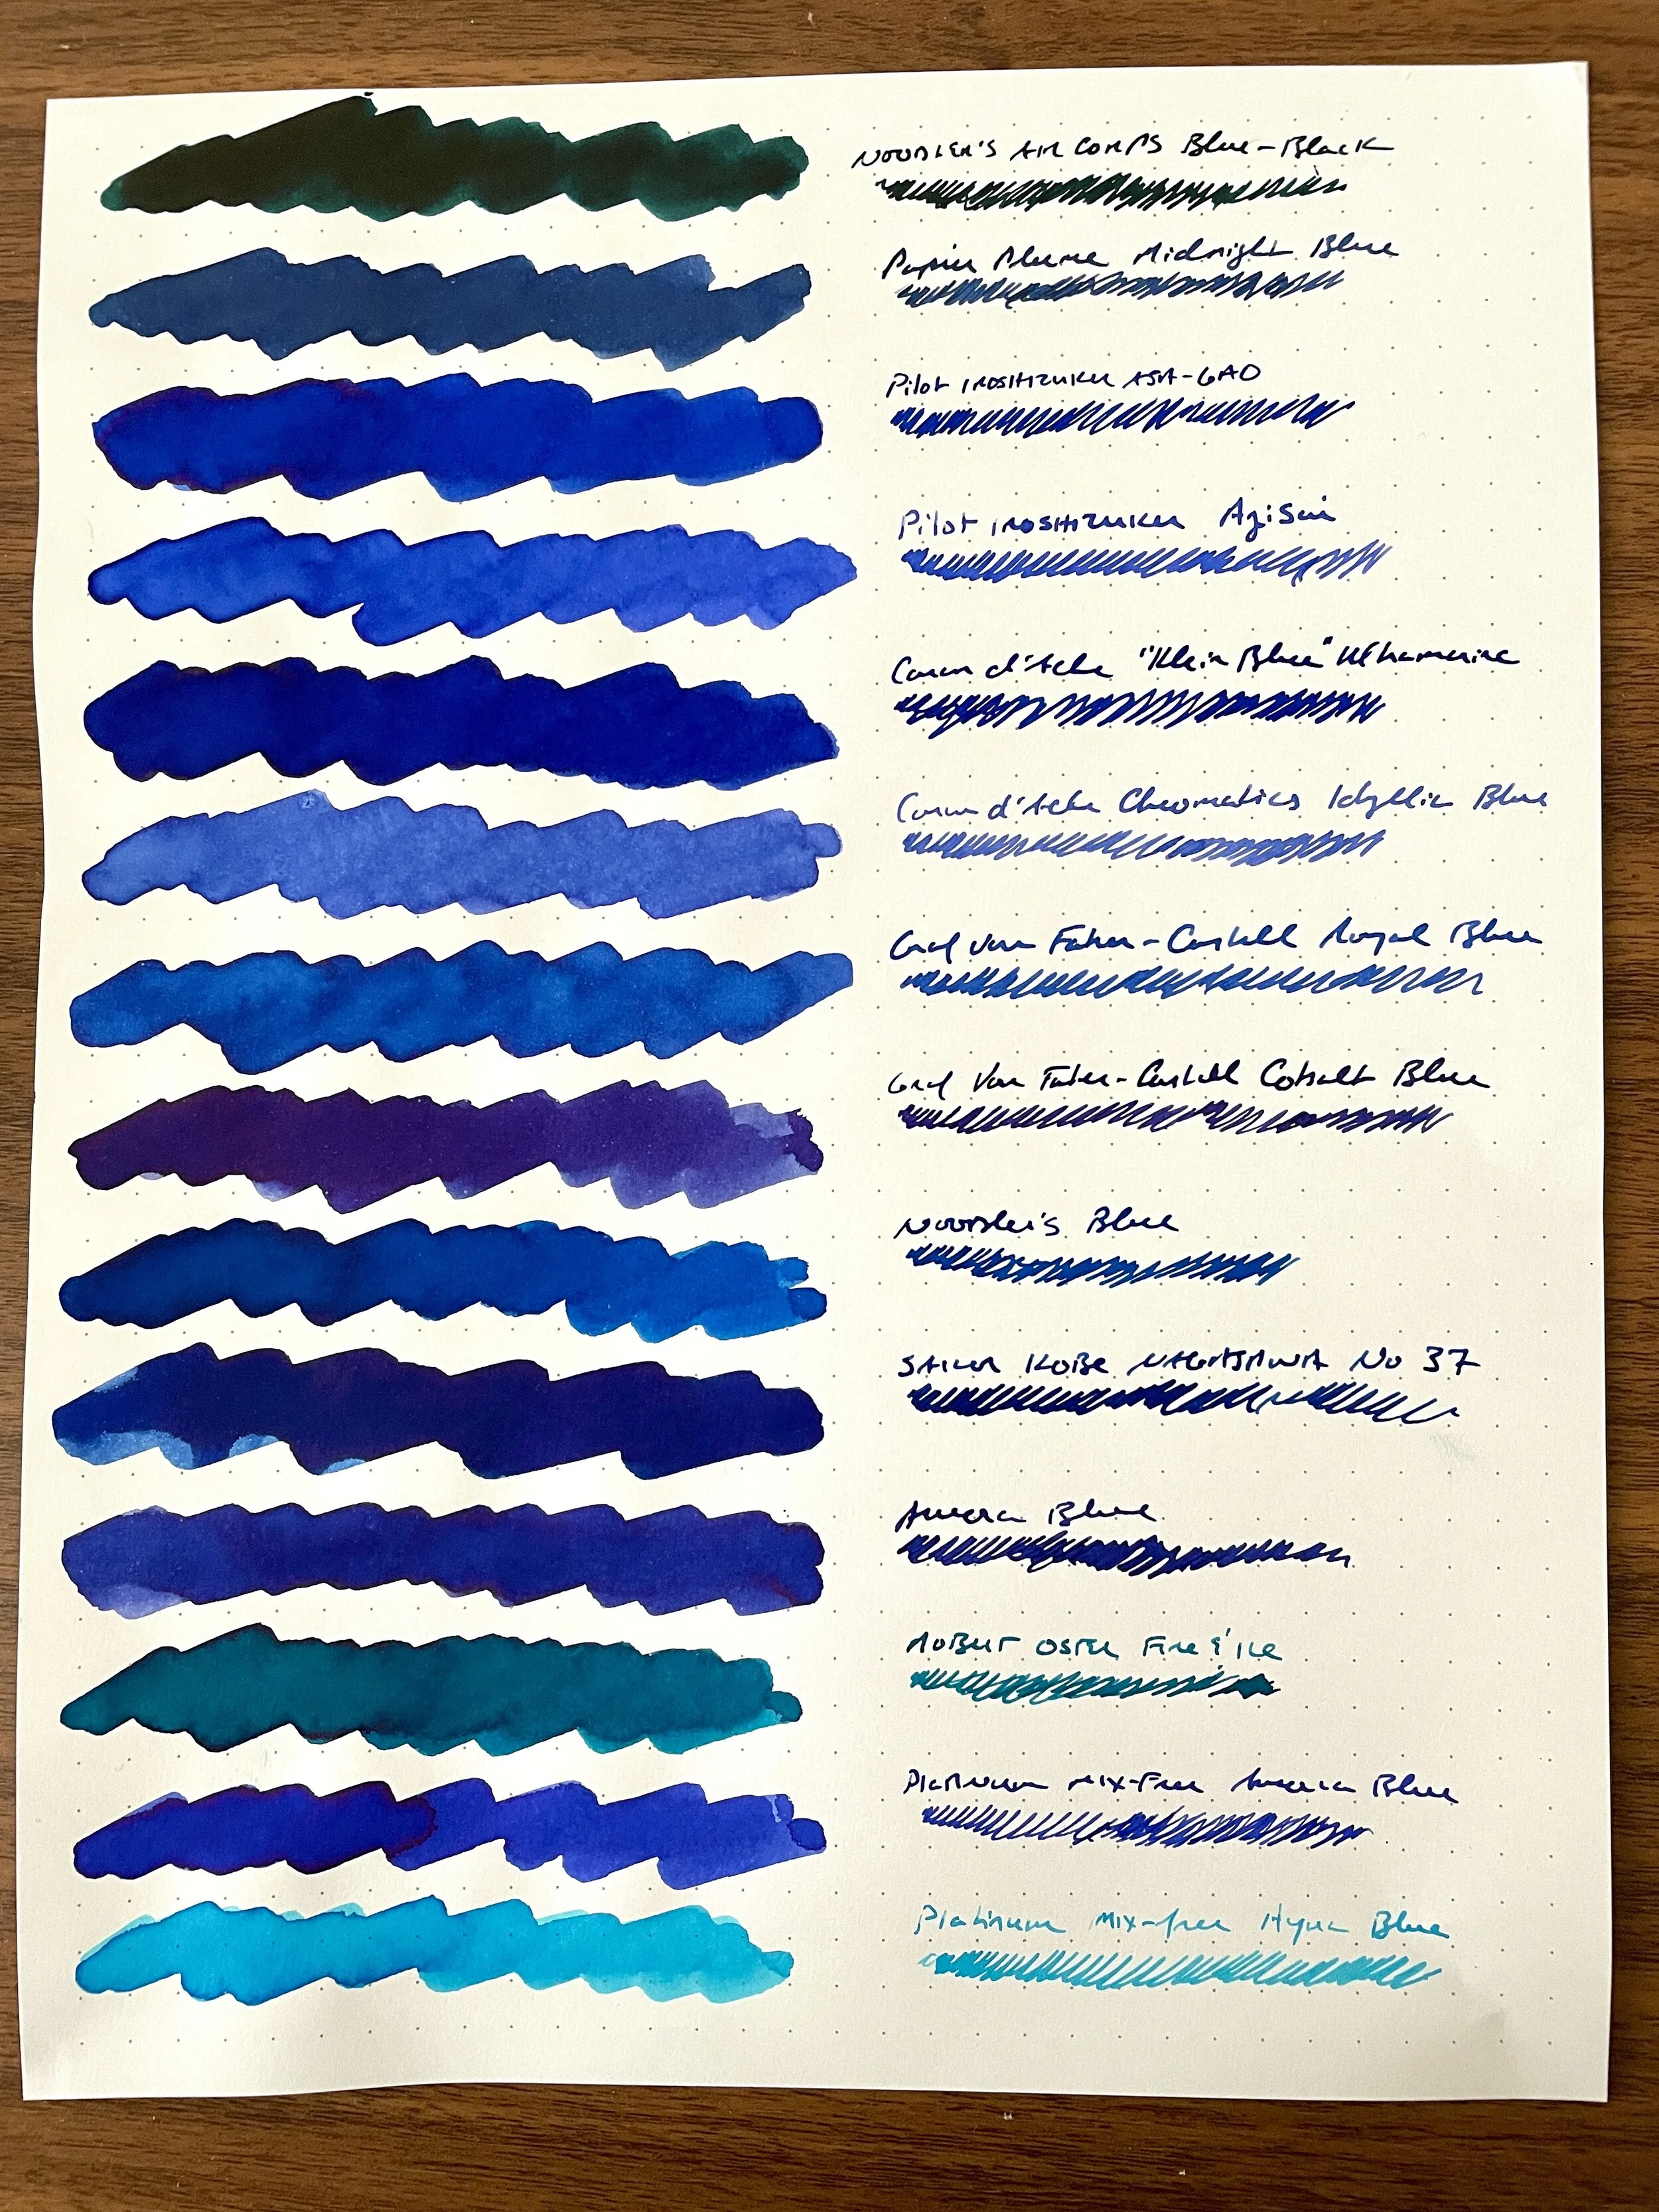 NOODLER'S AIR CORPS Blue-Black
Papier Plume Midnight Blue
Pilot IROSHIZUKU ASA-GAO
Pilot IROSHIZUKU Ajisai
Caran d'Ache "Klein Blue" Ultramarine
Caran d'Ache Chromatics Idyllic Blue
Graf von Faber-Castell Royal Blue
Graf Von Faber-Castell Cobalt Blue
NOODler's Blue
SAILOR KOBE NAGASAWA No 37
Aurora Blue
ROBERT OSTER Fire & Ice
Platinum Mix-Free Aurora Blue
Platinum Mix-free Aqua Blue